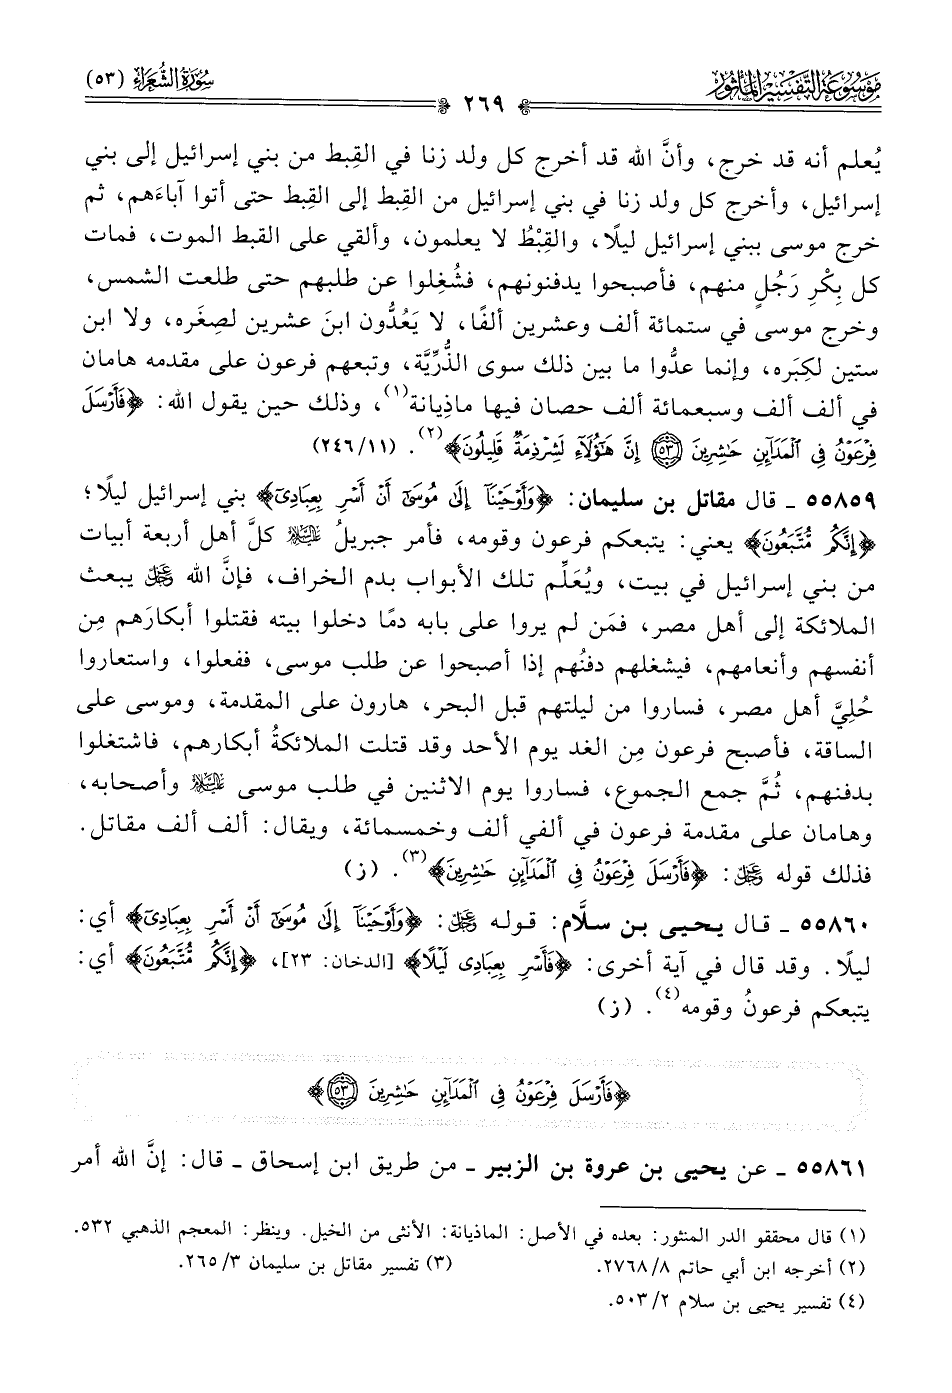 مَوْسُوعَة التَّفْسِيرِ المَأْثُور
٢٦٩
سُورَةُ الشُّعَرَاء (٥٣)
يُعلم أنه قد خرج، وأنَّ الله قد أخرج كل ولد زنا في القِبط من بني إسرائيل إلى بني
إسرائيل، وأخرج كل ولد زنا في بني إسرائيل من القِبط إلى القِبط حتى أتوا آباءَهم، ثم
خرج موسى ببني إسرائيل ليلًا، والقِبْطُ لا يعلمون، وألقي على القبط الموت، فمات
كل بِكْرِ رَجُلٍ منهم، فأصبحوا يدفنونهم، فشُغِلوا عن طلبهم حتى طلعت الشمس،
وخرج موسى في ستمائة ألف وعشرين ألفًا، لا يَعُدُّون ابنَ عشرين لصِغَره، ولا ابن
ستين لكِبَره، وإنما عدُّوا ما بين ذلك سوى الذُّرِّيَّة، وتبعهم فرعون على مقدمه هامان
في ألف ألف وسبعمائة ألف حصان فيها ماذِيانة(١)، وذلك حين يقول الله: ﴿فَأَرْسَلَ
فِرْعَوْنُ فِى ٱلْمَدَآئِنِ حَـٰشِرِينَ ۝٥٣ إِنَّ هَـٰٓؤُلَآءِ لَشِرْذِمَةٌ قَلِيلُونَ﴾(٢). (٢٤٦/١١)
٥٥٨٥٩ ـ قال مقاتل بن سليمان: ﴿وَأَوْحَيْنَآ إِلَىٰ مُوسَىٰٓ أَنْ أَسْرِ بِعِبَادِىٓ﴾ بني إسرائيل ليلًا؛
﴿إِنَّكُم مُّتَّبَعُونَ﴾ يعني: يتبعكم فرعون وقومه، فأمر جبريلُ عليه السلام كلَّ أهل أربعة أبيات
من بني إسرائيل في بيت، ويُعَلِّم تلك الأبواب بدم الخراف، فإنَّ الله عز وجل يبعث
الملائكة إلى أهل مصر، فمَن لم يروا على بابه دمًا دخلوا بيته فقتلوا أبكارَهم مِن
أنفسهم وأنعامهم، فيشغلهم دفنُهم إذا أصبحوا عن طلب موسى، ففعلوا، واستعاروا
حُلِيَّ أهل مصر، فساروا من ليلتهم قبل البحر، هارون على المقدمة، وموسى على
الساقة، فأصبح فرعون مِن الغد يوم الأحد وقد قتلت الملائكةُ أبكارهم، فاشتغلوا
بدفنهم، ثُمَّ جمع الجموع، فساروا يوم الاثنين في طلب موسى عليه السلام وأصحابه،
وهامان على مقدمة فرعون في ألفي ألف وخمسمائة، ويقال: ألف ألف مقاتل.
فذلك قوله عز وجل: ﴿فَأَرْسَلَ فِرْعَوْنُ فِى ٱلْمَدَآئِنِ حَـٰشِرِينَ﴾(٣). (ز)
٥٥٨٦٠ ـ قال يحيى بن سلَّام: قوله عز وجل: ﴿وَأَوْحَيْنَآ إِلَىٰ مُوسَىٰٓ أَنْ أَسْرِ بِعِبَادِىٓ﴾ أي:
ليلًا. وقد قال في آية أخرى: ﴿فَأَسْرِ بِعِبَادِى لَيْلًا﴾ [الدخان: ٢٣]، ﴿إِنَّكُم مُّتَّبَعُونَ﴾ أي:
يتبعكم فرعونُ وقومه(٤). (ز)
﴿فَأَرْسَلَ فِرْعَوْنُ فِى ٱلْمَدَآئِنِ حَـٰشِرِينَ ۝٥٣﴾
٥٥٨٦١ ـ عن يحيى بن عروة بن الزبير ـ من طريق ابن إسحاق ـ قال: إنَّ الله أمر
(١) قال محققو الدر المنثور: بعده في الأصل: الماذيانة: الأنثى من الخيل. وينظر: المعجم الذهبي ٥٣٢.
(٢) أخرجه ابن أبي حاتم ٢٧٦٨/٨. (٣) تفسير مقاتل بن سليمان ٢٦٥/٣.
(٤) تفسير يحيى بن سلام ٥٠٣/٢.